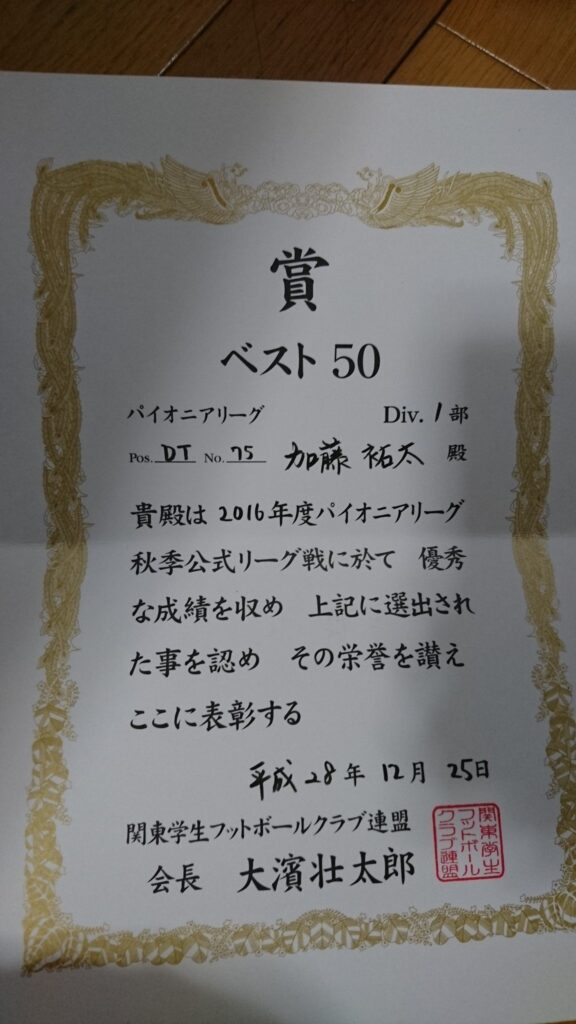 賞
ベスト 50
パイオニアリーグ Div. 1 部
Pos. DT No. 75 加藤 祐太 殿
貴殿は 2016年度パイオニアリーグ
秋季公式リーグ戦に於て 優秀
な成績を収め 上記に選出され
た事を認め その栄誉を讃え
ここに表彰する
平成 28 年 12 月 25 日
関東学生フットボールクラブ連盟
会長 大濱壮太郎
関東学生
フットボール
クラブ連盟